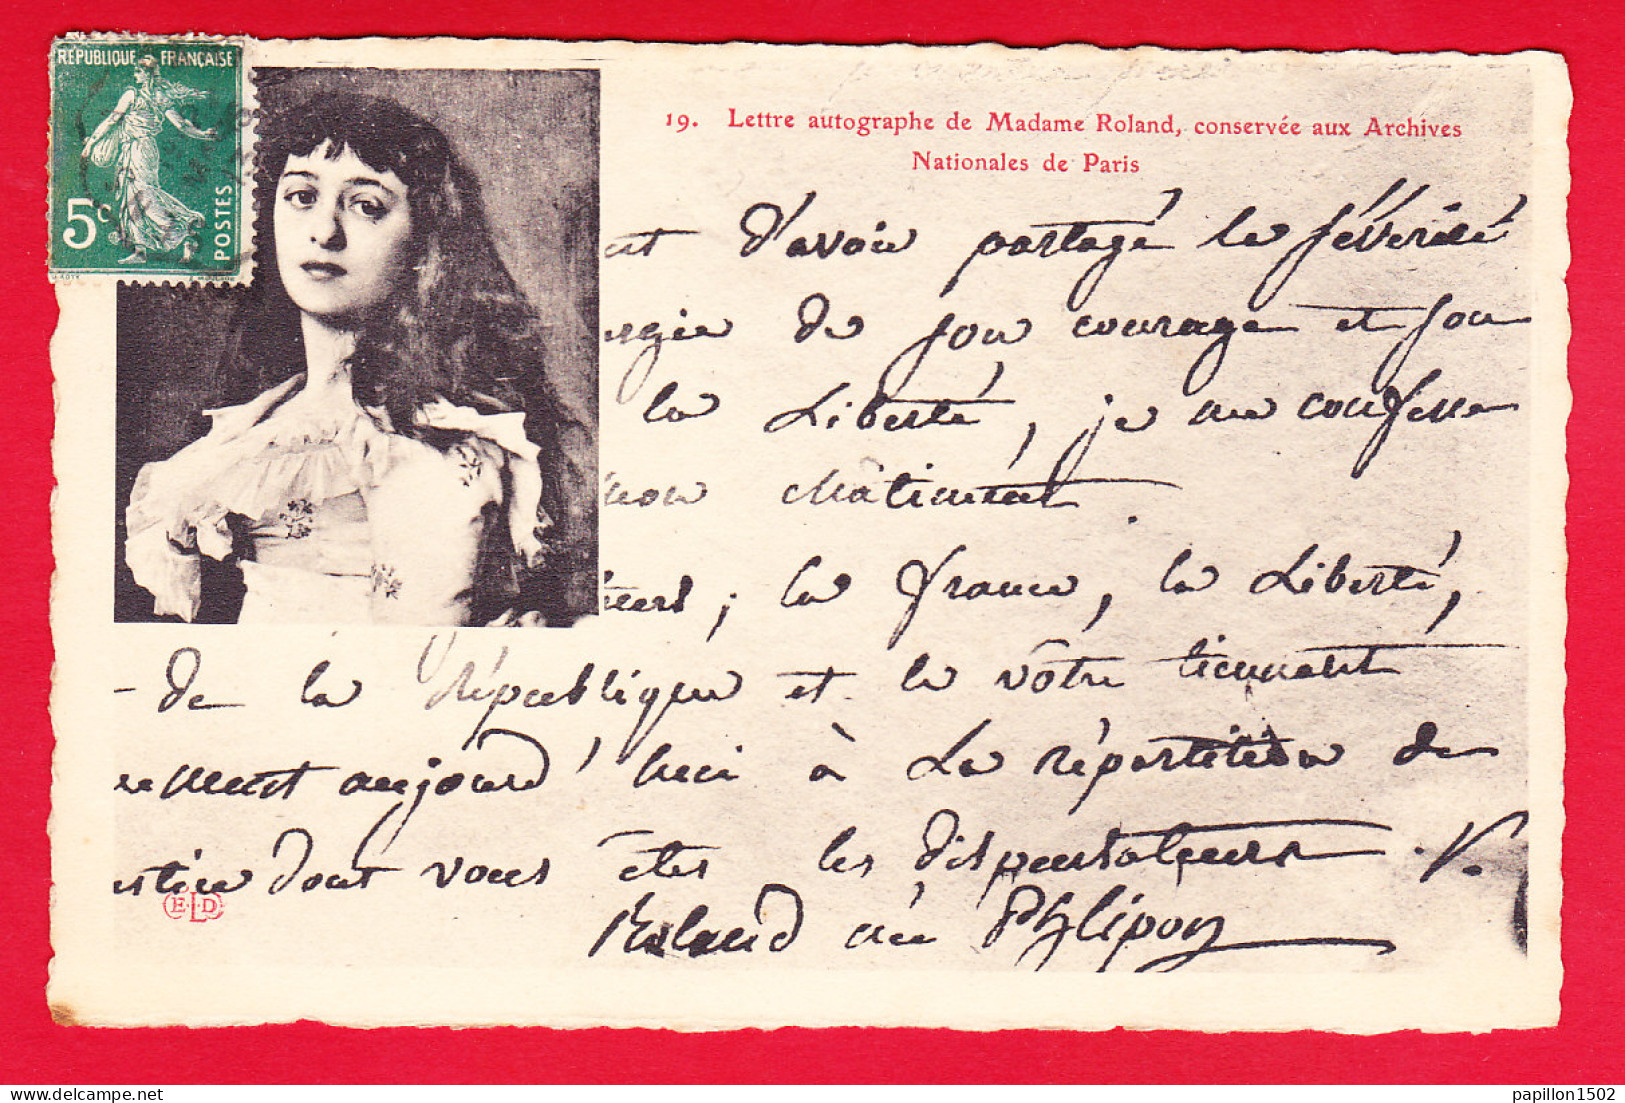 RÉPUBLIQUE FRANÇAISE
5c
POSTES
19. Lettre autographe de Madame Roland, conservée aux Archives
Nationales de Paris
d'avoir partagé la sévérité
de son courage et son
la Liberté, je me confesse
mon châtiment.
; la france, la Liberté,
de la République et la vôtre tiennent
aujourd'hui à la répartition de
dont vous êtes les dispensateurs.
Roland née Phlipon
ELD
papillon1502